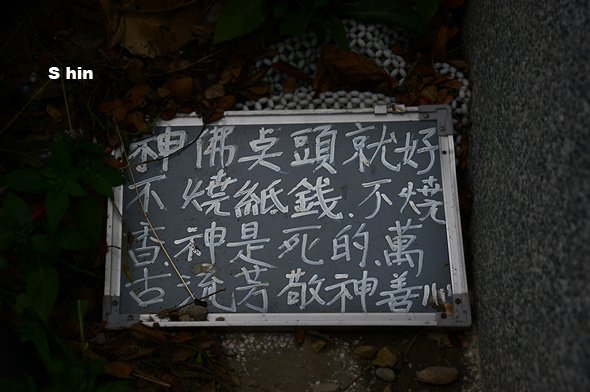 S hin
神佛桌頭就好
不燒紙錢.不燒
香.神是死的.萬
古流芳敬神善